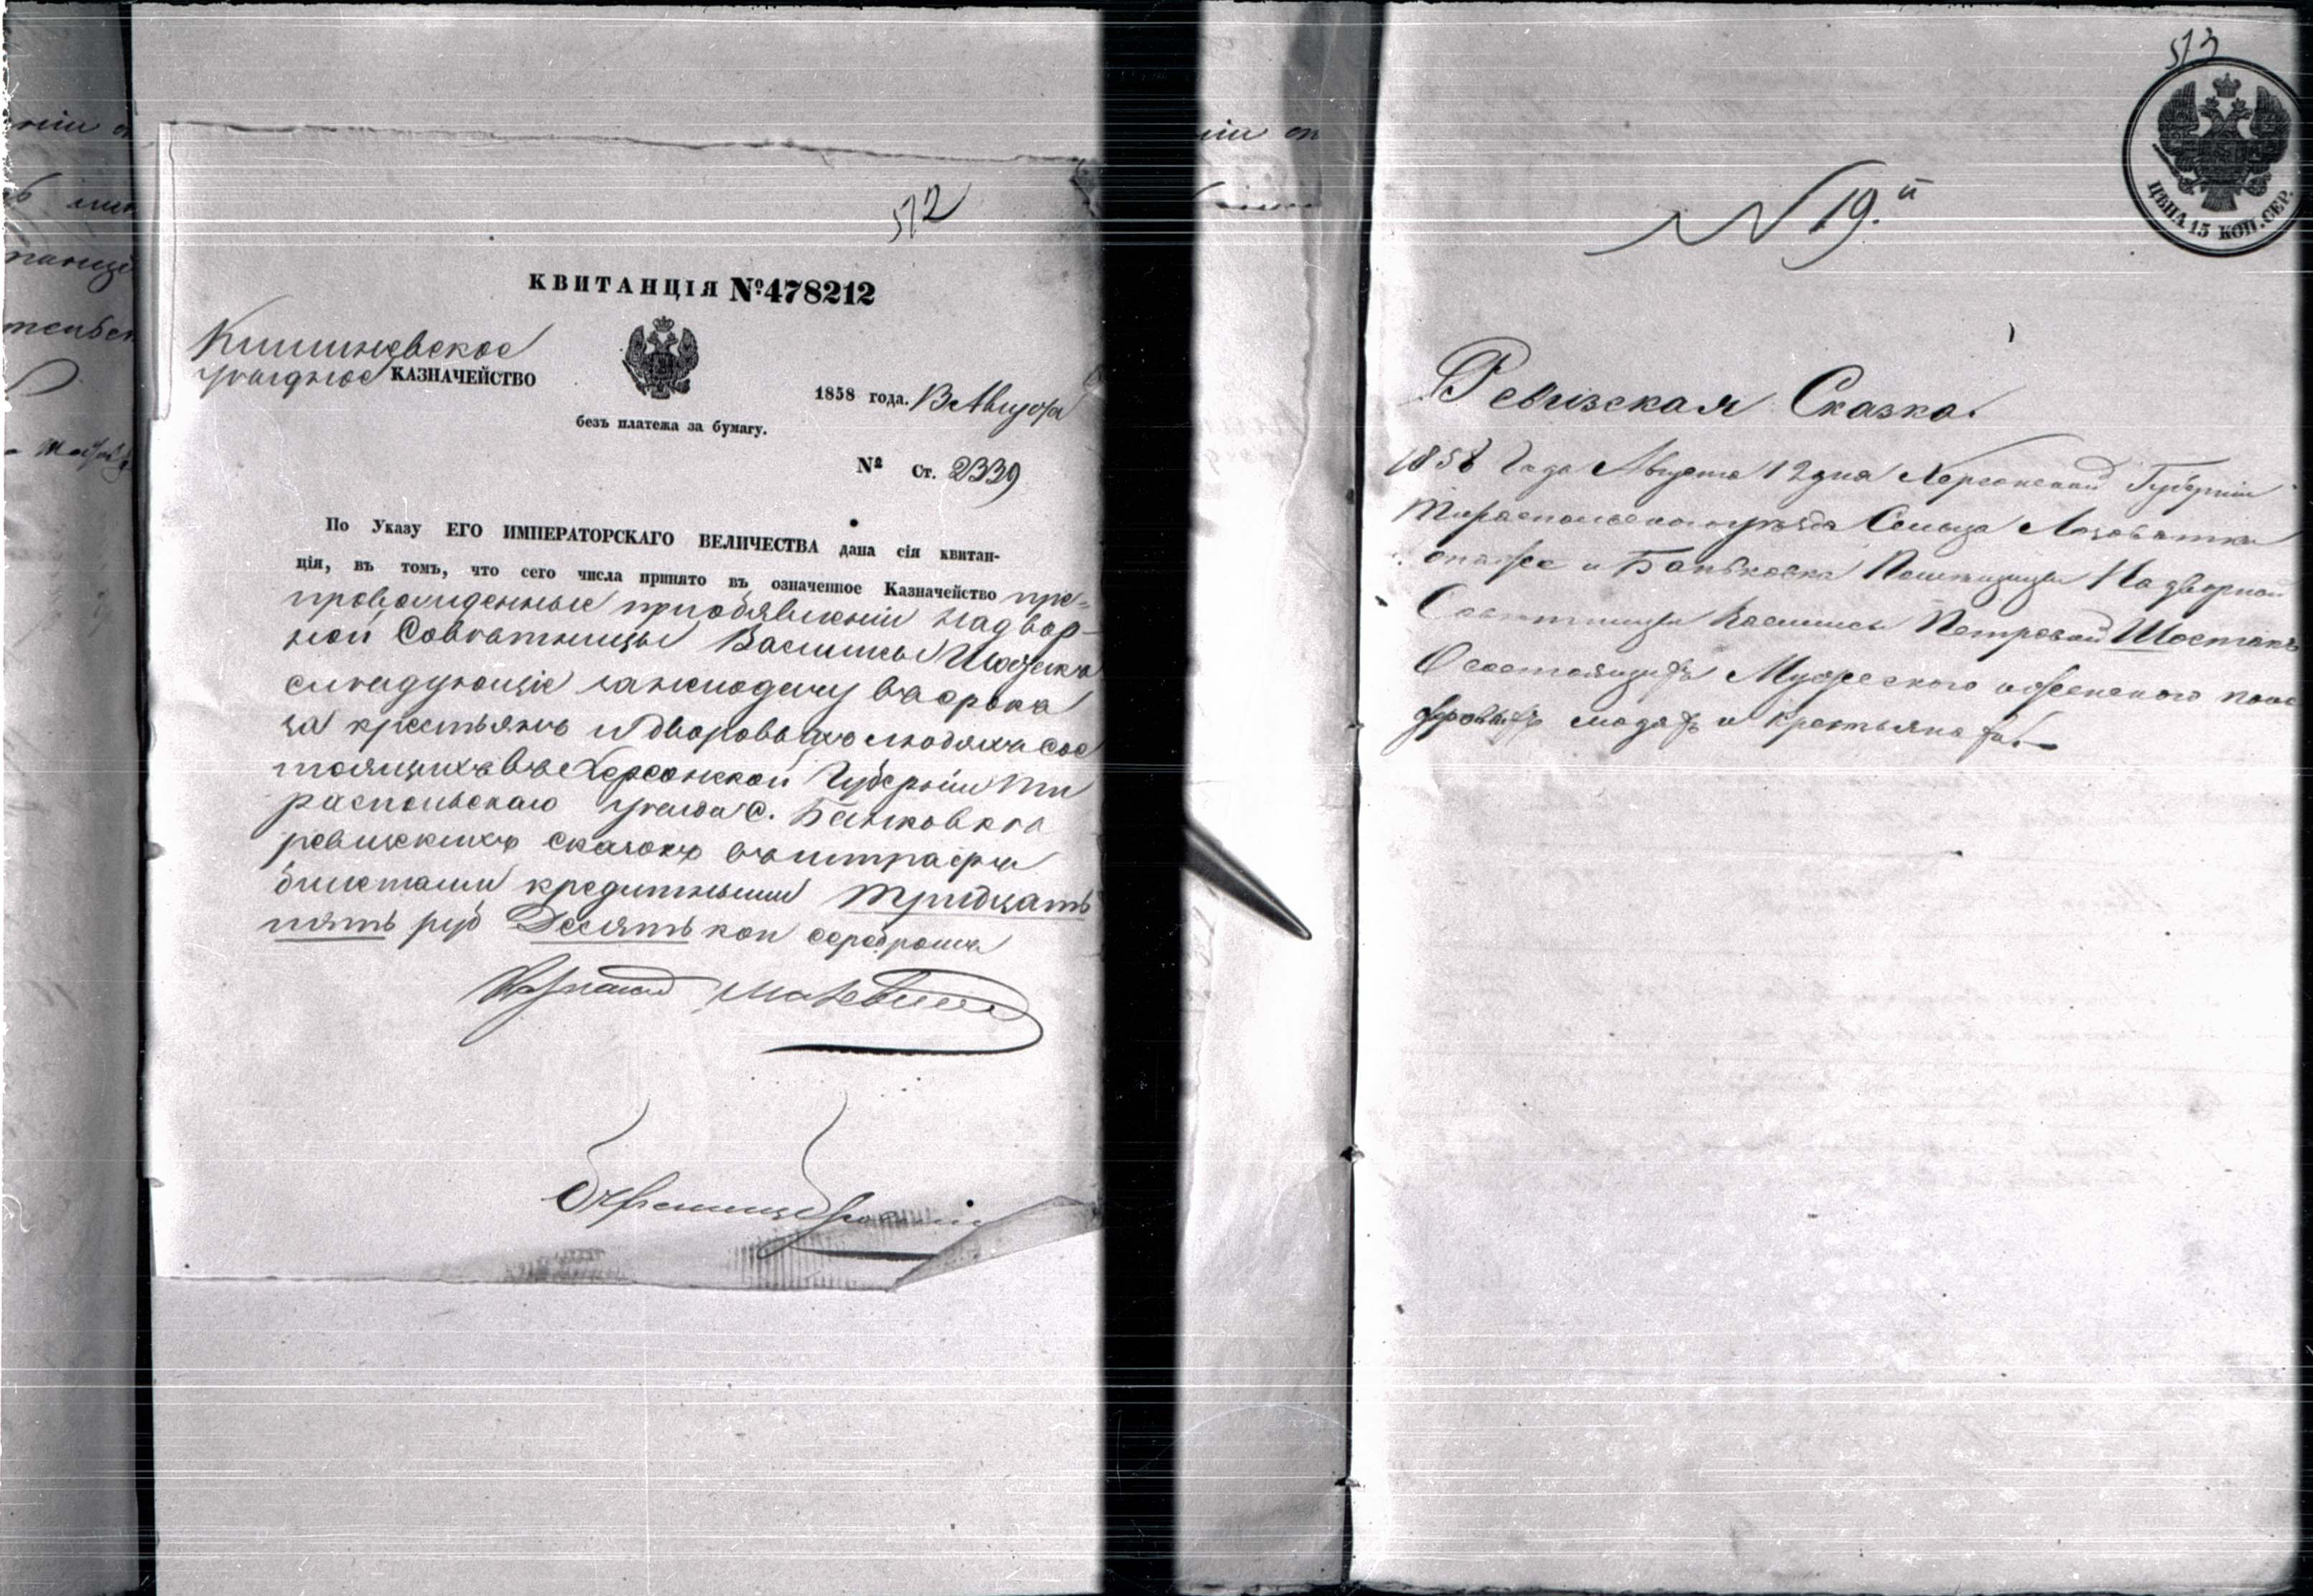 512
КВИТАНЦІЯ №478212
Кишиневское
уѣздное КАЗНАЧЕЙСТВО
1858 года. 13 Августа
безъ платежа за бумагу.
№ Ст. 2339
По Указу ЕГО ИМПЕРАТОРСКАГО ВЕЛИЧЕСТВА дана сія квитан-
ція, въ томъ, что сего числа принято въ означенное Казначейство пре-
провожденные при объявленіи Надвор-
ной Совѣтницы Василисы Шостакъ
слѣдующіе за неподачу въ срокъ
за крестьянъ и дворовыхъ людяхъ сос
тоящихъ въ Херсонской Губерніи Ти
распольскаго уѣзда С. Банковка
ревизскихъ сказокъ въ штрафъ
билетами кредитными тридцать
пять руб Десять коп серебромъ
513
ЦѢНА 15 КОП. СЕР.
N 19.й
Ревизская Сказка.
1858 Года Августа 12 дня Херсонской Губерніи
Тираспольского уѣзда Сельца Лозоватки
онаже и Баньковка Помѣщицы Надворной
Совѣтницы Василисы Петровой Шостакъ
О состоящихъ Мужеского и женского пола
дворовыхъ людяхъ и крестьянахъ.